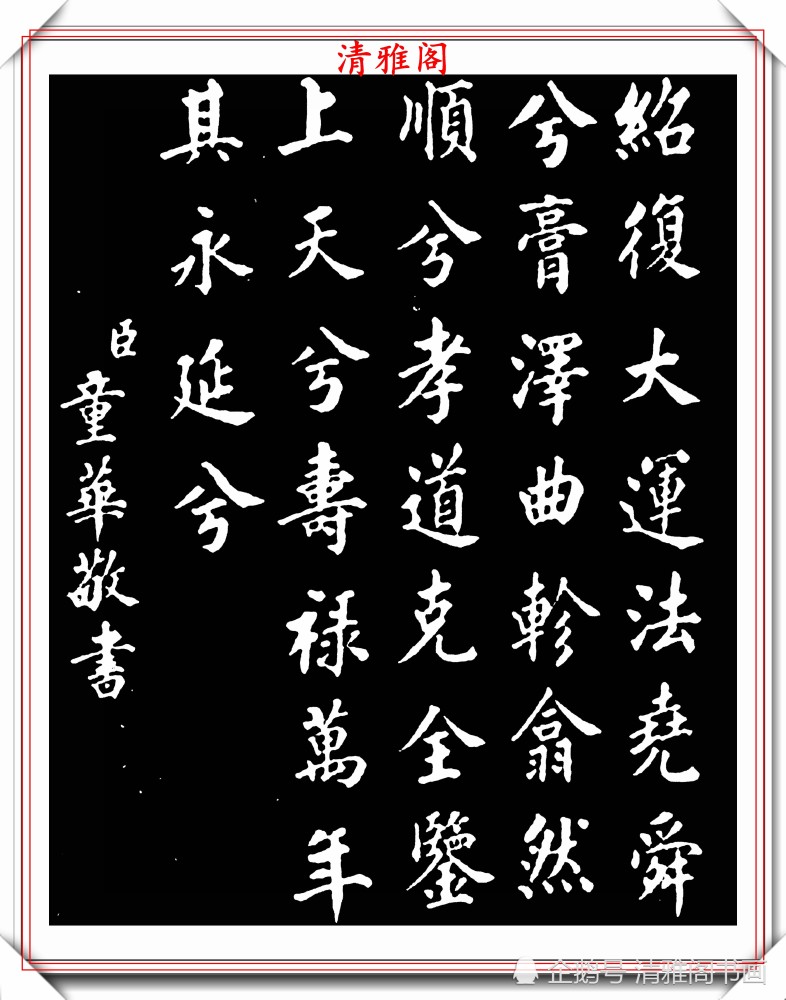 清雅阁
紹復大運法堯舜
兮膏澤曲軫翕然
順兮孝道克全鑒
上天兮壽祿萬年
其永延兮
臣童華敬書
企鹅号 清雅阁书画